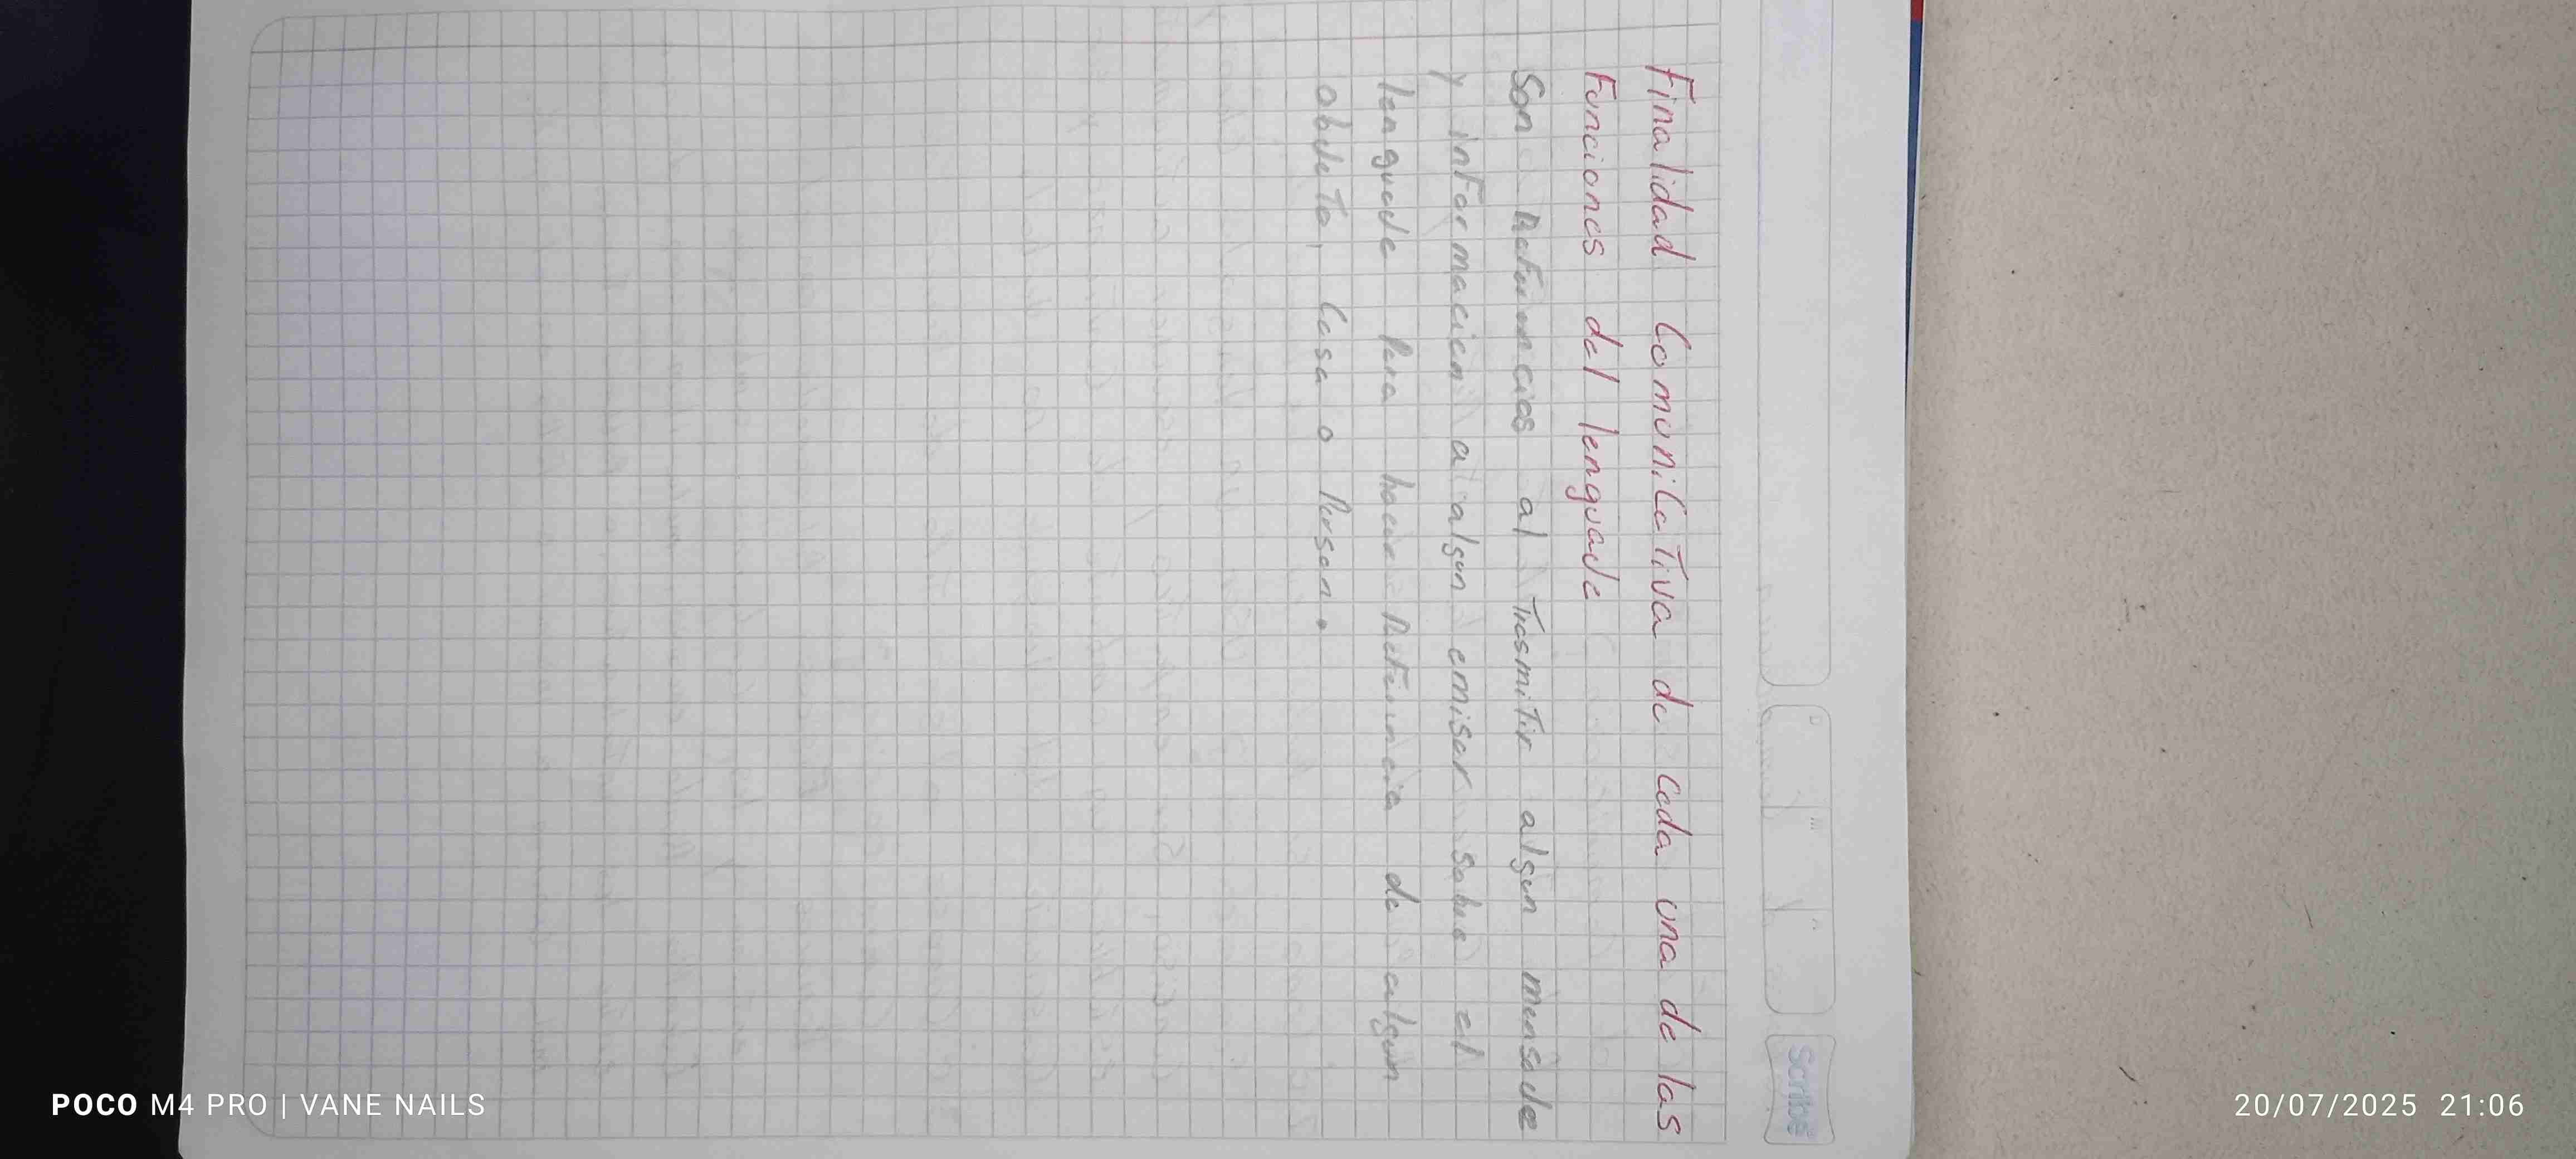 Finalidad ComuniCaTiva de cada una de las
Funciones del lenguade
Son Referencias al TrasmiTir algun mensade
y informacion a algun emisor sobre el
lenguade Para hacer Referencia de algun
obdeTo, Cosa o Person.
Scribe
POCO M4 PRO | VANE NAILS
20/07/2025 21:06